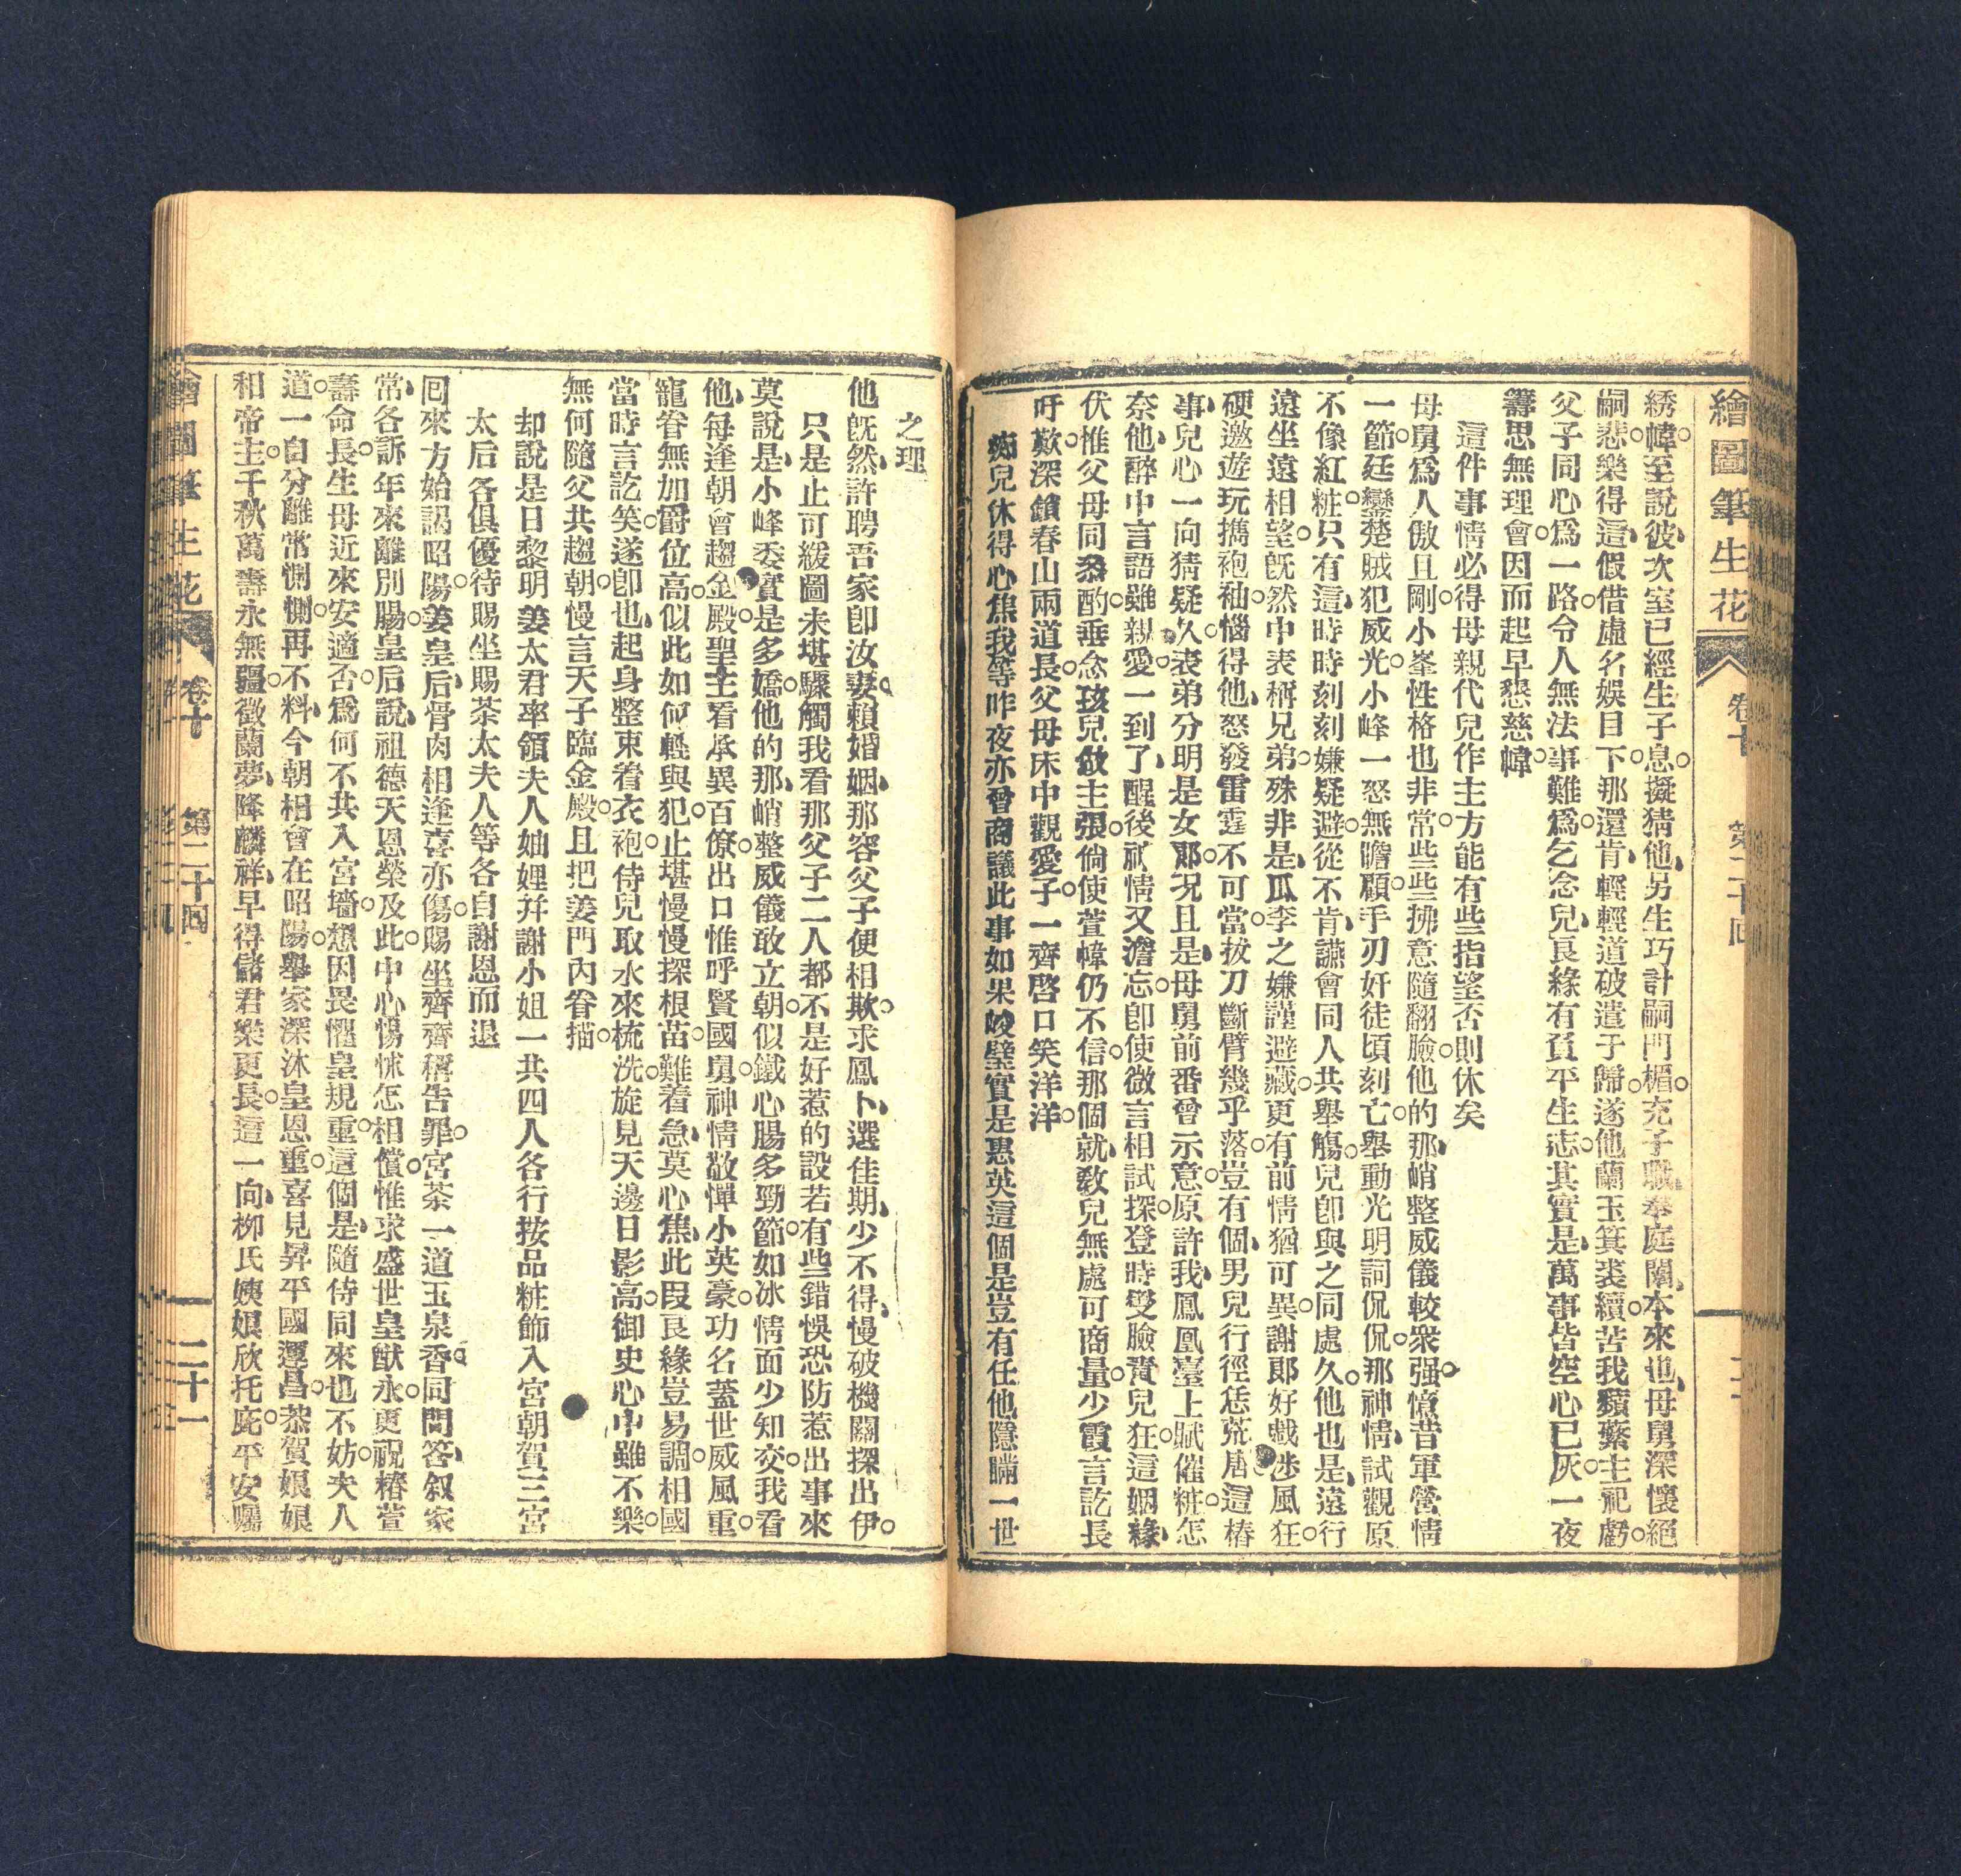 繪圖筆生花 卷十 第二十回
綉幃至說彼次室已經生子息擬猜他另生巧計嗣門楣充子職奉庭闈本來也母舅深懷絕
嗣悲樂得這假借虛名娛目下那還肯輕輕道破遣于歸遂他蘭玉箕裘續苦我蘋蘩主祀虧
父子同心爲一路令人無法事難爲乞念兒良緣有負平生志其實是萬事皆空心已灰一夜
籌思無理會因而起早懇慈幃
這件事情必得母親代兒作主方能有些指望否則休矣
母舅爲人傲且剛小峯性格也非常些些拂意隨翻臉他的那峭整威儀較衆强憶昔軍營情
一節廷鸞楚賊犯威光小峰一怒無瞻顧手刃奸徒頃刻亡舉動光明詞侃侃那神情試觀原
不像紅粧只有這時時刻刻嫌疑避從不肯讌會同人共舉觴兒卽與之同處久他也是遠行
遠坐遠相望旣然中表稱兄弟殊非是瓜李之嫌謹避藏更有前情猶可異謝郎好戲涉風狂
硬邀遊玩擕袍袖惱得他怒發雷霆不可當拔刀斷臂幾乎落豈有個男兒行徑恁荒唐這樁
事兒心一向猜疑久表弟分明是女郎况且是母舅前番曾示意原許我鳳凰臺上賦催粧怎
奈他醉中言語雖親愛一到了醒後祇情又澹忘卽使微言相試探登時雙臉賚兒狂這姻緣
伏惟父母同叅酌垂念孩兒做主張倘使萱幃仍不信那個就敎兒無處可商量少霞言訖長
吁歎深鎖春山兩道長父母床中觀愛子一齊啓口笑洋洋
痴兒休得心焦我等昨夜亦曾商議此事如果峻璧實是惠英這個是豈有任他隱瞞一世
之理
他旣然許聘吾家卽汝妻賴婚姻那容父子便相欺求鳳卜選佳期少不得慢破機關探出伊
只是止可緩圖未堪驟觸我看那父子二人都不是好惹的設若有些錯悞恐防惹出事來
莫說是小峰委實是多嬌他的那峭整威儀敢立朝似鐵心腸多勁節如冰情面少知交我看
他每逢朝會趨金殿聖主看承異百僚出口惟呼賢國舅神情敬憚小英豪功名蓋世威風重
寵眷無加爵位高似此如何輕與犯止堪慢慢探根苗難着急莫心焦此叚良緣豈易調相國
當時言訖笑遂卽也起身整束着衣袍侍兒取水來梳洗旋見天邊日影高御史心中雖不樂
無何隨父共趨朝慢言天子臨金殿且把姜門內眷描
却說是日黎明姜太君率領夫人妯娌幷謝小姐一共四人各行按品粧飾入宮朝賀三宮
太后各俱優待賜坐賜茶太夫人等各自謝恩而退
囘來方始謁昭陽姜皇后骨肉相逢喜亦傷賜坐齊齊稱告罪宮茶一道玉泉香同問答叙家
常各訴年來離別腸皇后說祖德天恩榮及此中心惕怵怎相償惟求盛世皇猷永更祝椿萱
壽命長生母近來安適否爲何不共入宮墻想因畏懼皇規重這個是隨侍同來也不妨夫人
道一自分離常惻惻再不料今朝相會在昭陽舉家深沐皇恩重喜見昇平國運昌恭賀娘娘
和帝主千秋萬壽永無疆徵蘭夢降麟祥早得儲君樂更長這一向柳氏姨娘欣托庇平安囑
繪圖筆生花 卷十 第二十回 二十一